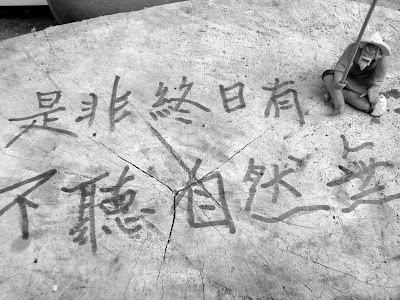 是非終日有
不聽自然無